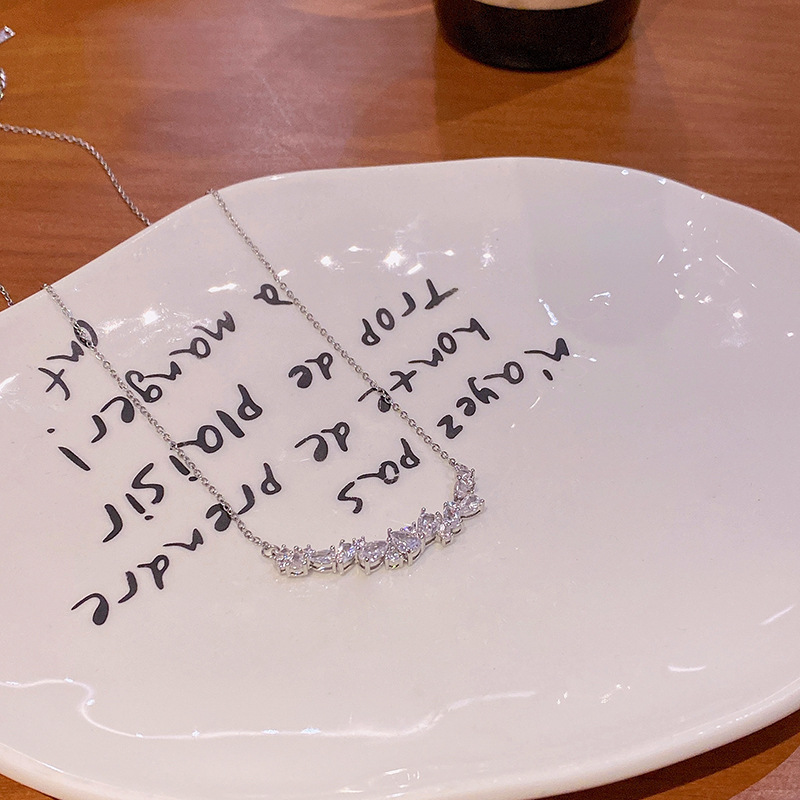 n'ayez pas
honte de prendre
Trop de plaisir
a mangeri
ont